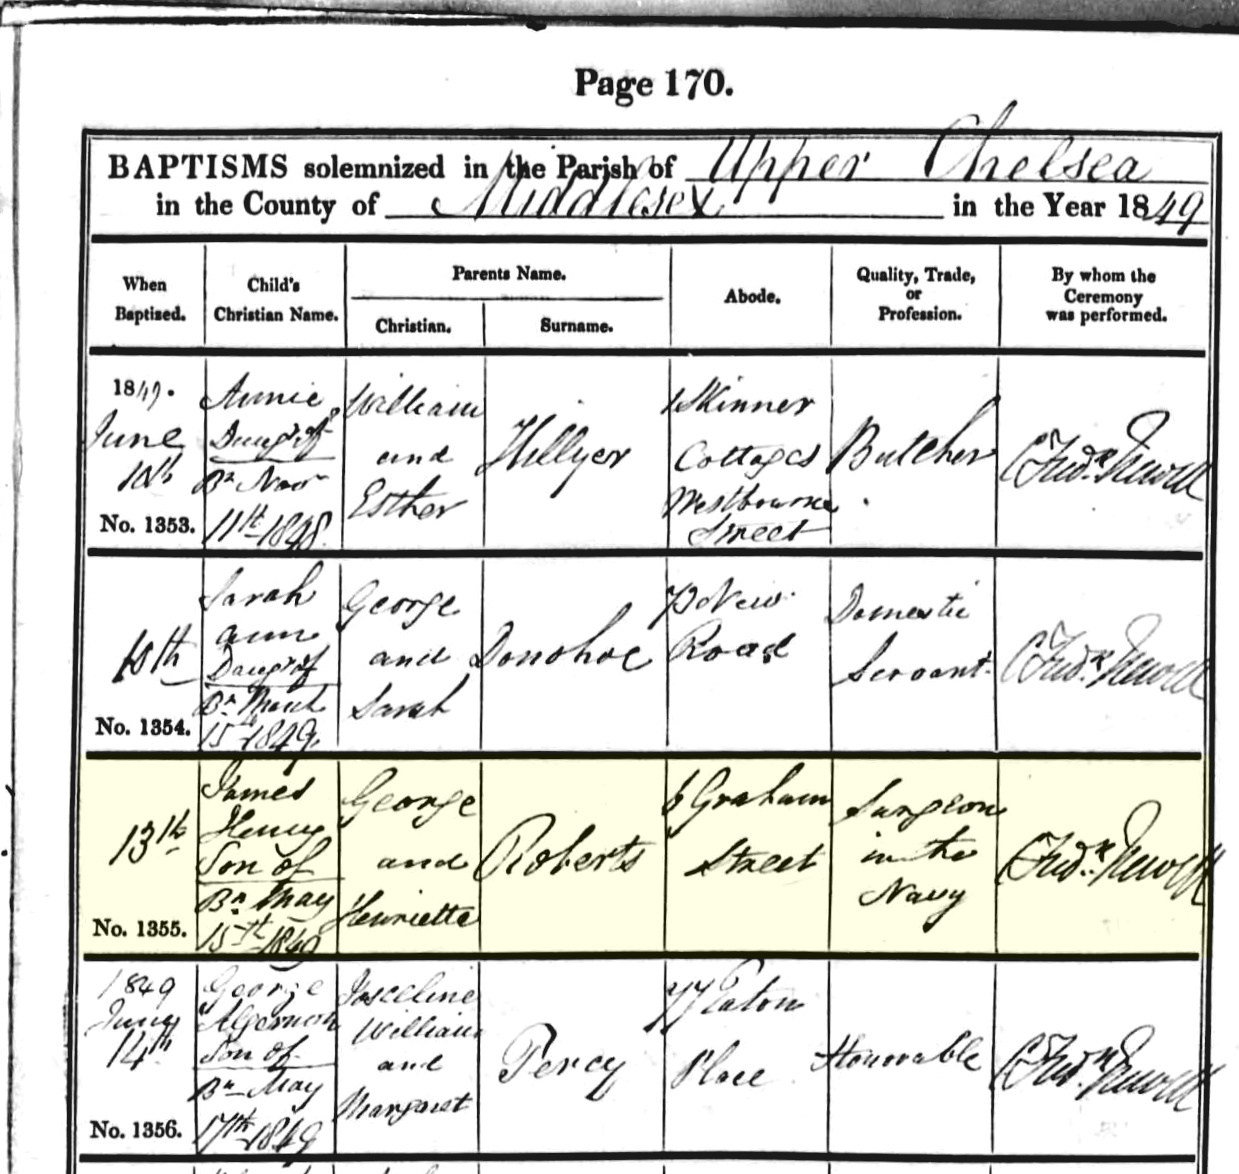 Page 170.
BAPTISMS solemnized in the Parish of Upper Chelsea
in the County of Middlesex in the Year 1849
When Baptized.
Child's Christian Name.
Parents Name.
Christian.
Surname.
Abode.
Quality, Trade, or Profession.
By whom the Ceremony was performed.
1849.
June
10th
No. 1353.
Annie
Daugr of
Bn Novr
11th 1848.
William
and
Esther
Hillyer
1 Skinner
Cottages
Westbourne
Street
Butcher
Fredk
10th
No. 1354.
Sarah
Ann
Daugr of
Bn March
15th 1849.
George
and
Sarah
Donohoe
New
Road
Domestic
Servant.
Fredk
13th
No. 1355.
James
Henry
Son of
Bn May
15th 1849
George
and
Henrietta
Roberts
6 Graham
Street
Surgeon
in the
Navy
Fredk
1849
June
14th
No. 1356.
George
Algernon
Son of
Bn May
17th 1849
Josceline
William
and
Margaret
Percy
77 Eaton
Place
Honorable
Fredk